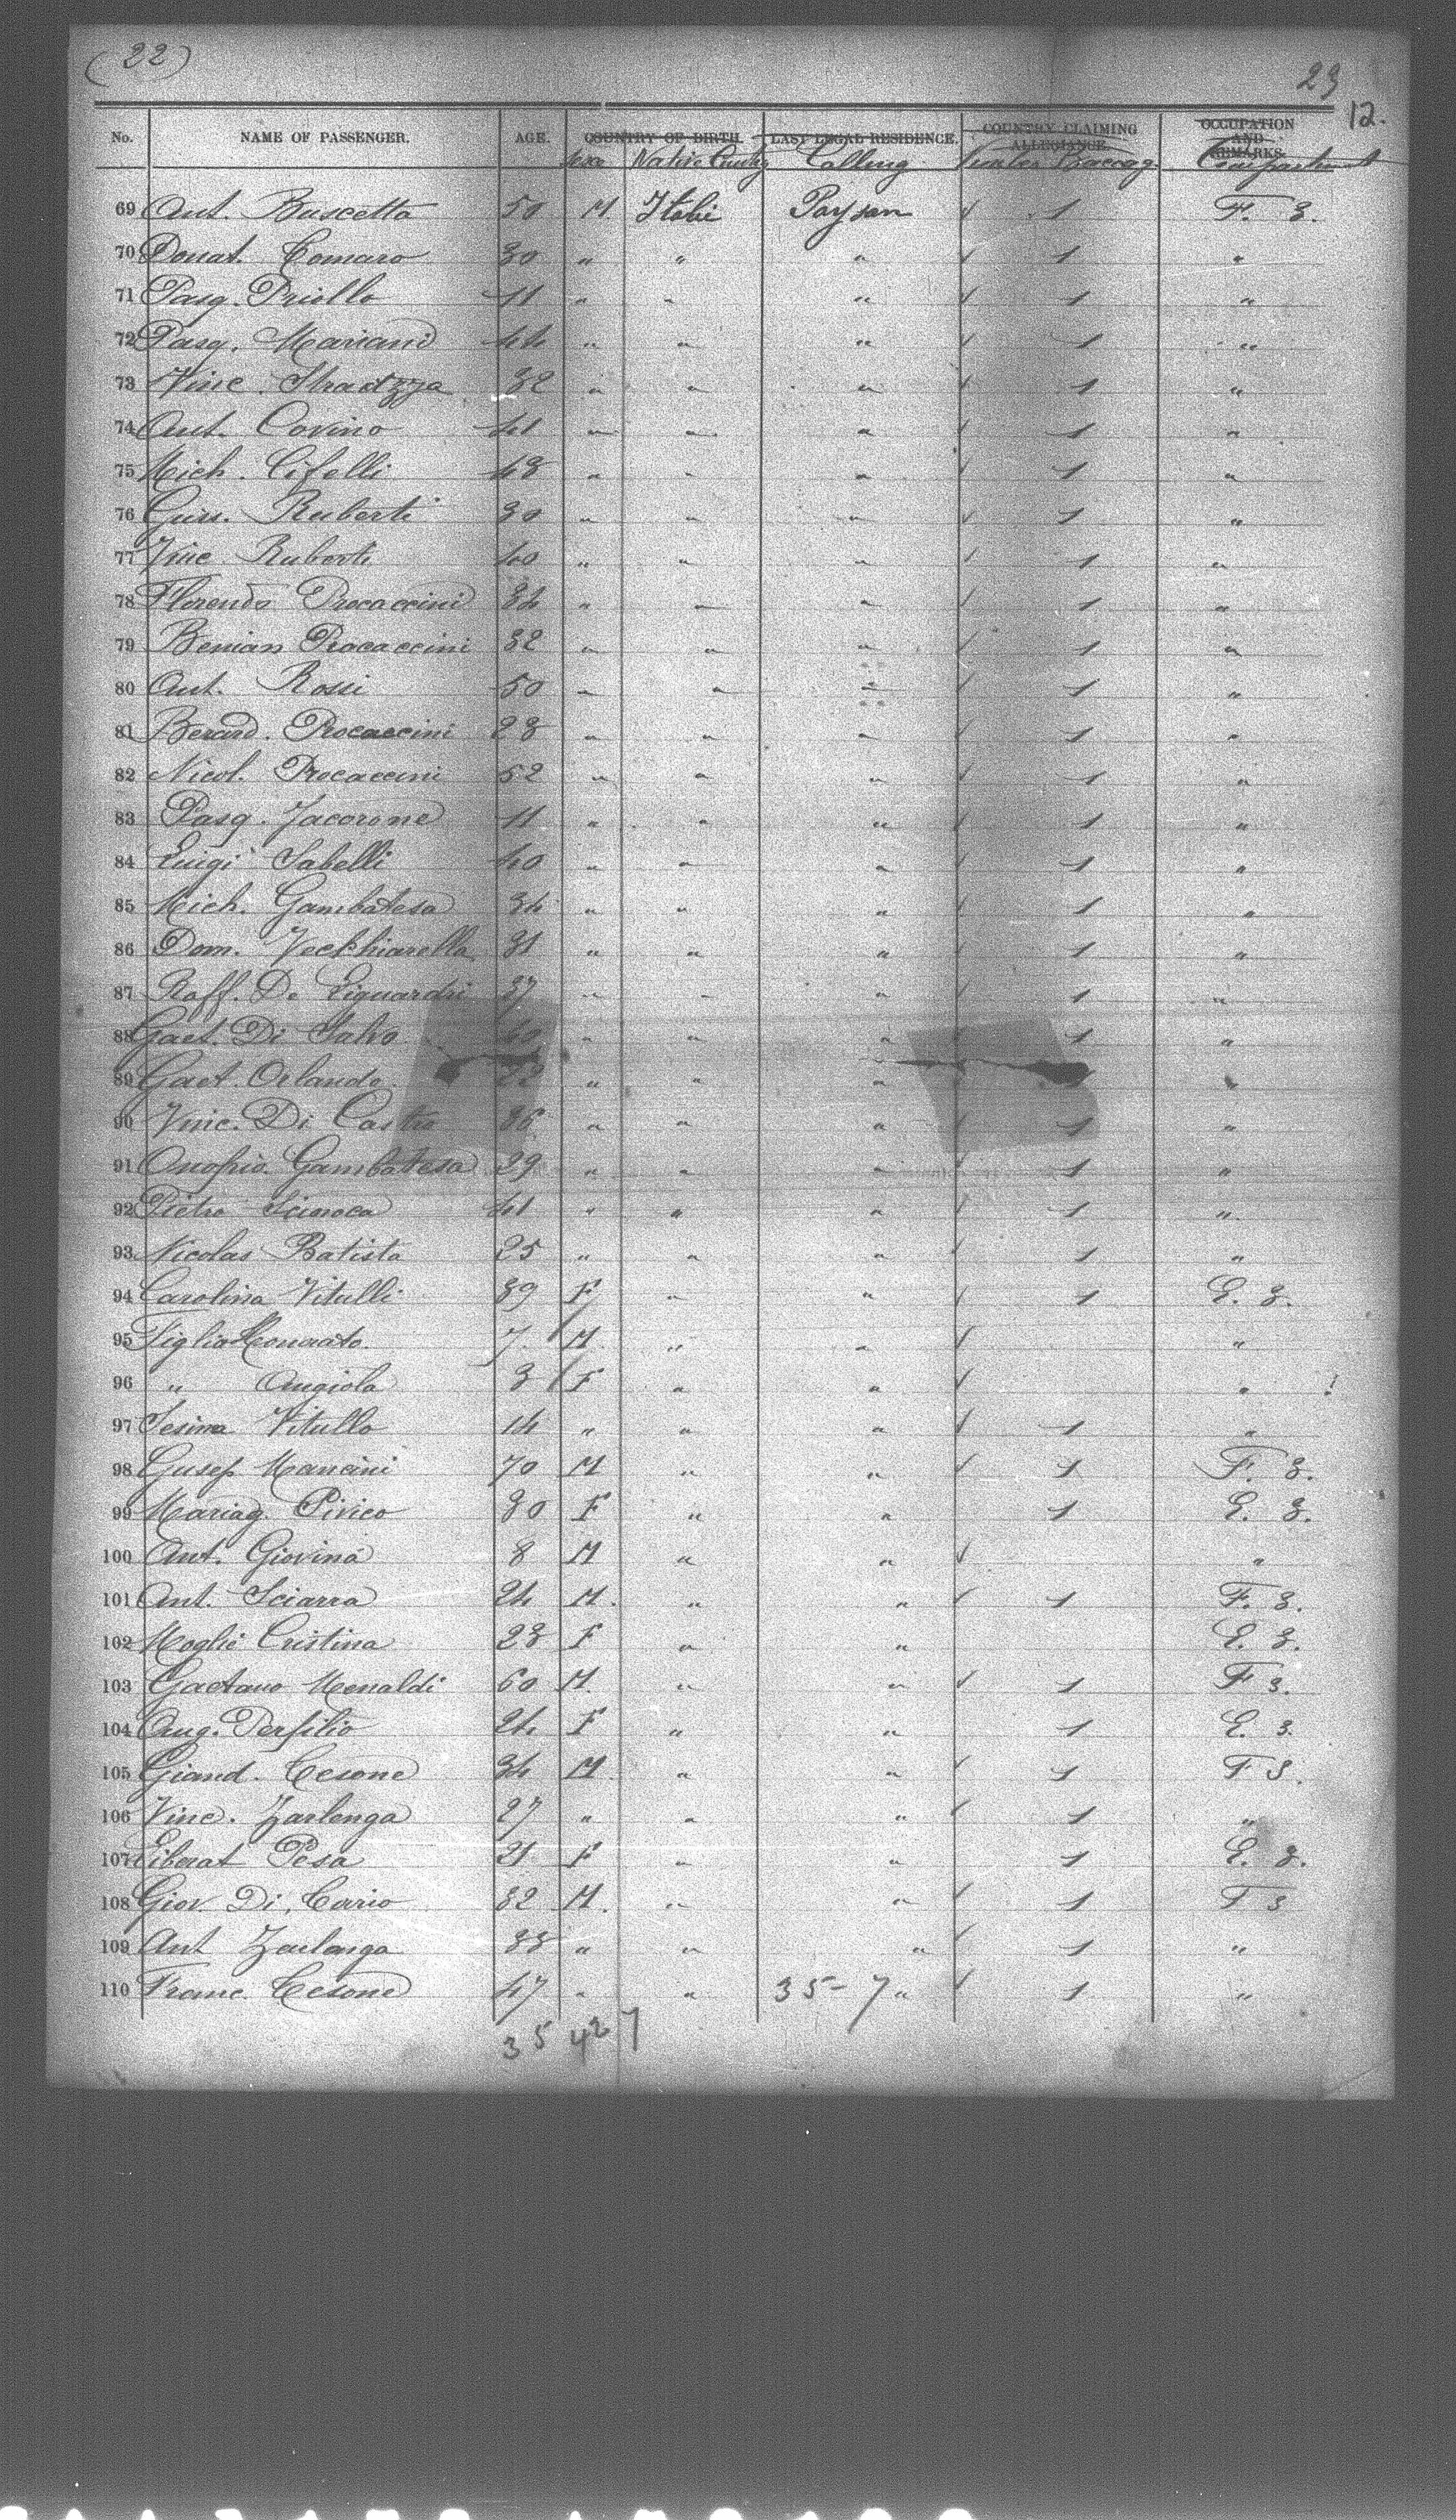 (22)
23
12.
No. NAME OF PASSENGER. AGE. COUNTRY OF BIRTH. LAST LEGAL RESIDENCE. COUNTRY CLAIMING ALLEGIANCE. OCCUPATION AND REMARKS.
Sexe Native Country Calling Baccag. Compartment
69 Ant. Buscetta 50 M. Italie Paysan ✓ 1 F. 3.
70 Donat. Comaro 30 " " " ✓ 1 "
71 Pasq. Priollo 11 " " " ✓ 1 "
72 Pasq. Mariani 44 " " " ✓ 1 "
73 Vinc. 32 " " " ✓ 1 "
74 Ant. Covino 41 " " " ✓ 1 "
75 Mich. Cifelli 43 " " " ✓ 1 "
76 Guis. Ruberti 30 " " " ✓ 1 "
77 Vinc. Ruberti 40 " " " ✓ 1 "
78 Florendo Procaccini 34 " " " ✓ 1 "
79 Benian Procaccini 32 " " " ✓ 1 "
80 Ant. Rossi 50 " " " ✓ 1 "
81 Berard. Procaccini 28 " " " ✓ 1 "
82 Nicol. Procaccini 52 " " " ✓ 1 "
83 Pasq. Jacorone 11 " " " ✓ 1 "
84 Luigi Sabelli 40 " " " ✓ 1 "
85 Mich. Gambatesa 34 " " " ✓ 1 "
86 Dom. Vecchiarella 31 " " " ✓ 1 "
87 Raff. De Liguardri 27 " " " ✓ 1 "
88 Gaet. Di Salvo 40 " " " ✓ 1 "
89 Gaet. Orlando 22 " " " 1 "
90 Vinc. Di Castro 36 " " " ✓ 1 "
91 Onofrio Gambatesa 29 " " " ✓ 1 "
92 Pietro Scioroca 41 " " " ✓ 1 "
93 Nicolas Batista 25 " " " ✓ 1 "
94 Carolina Vitulli 39 F " " ✓ 1 E. 3.
95 Figlio Honorato. 7. M. " " ✓ "
96 " Angiola 3 F " " ✓ "
97 Sesima Vitullo 14 " " " ✓ 1 "
98 Gusep. Mancini 70 M " " ✓ 1 F. 3.
99 Mariag. Pivico 30 F " " 1 E. 3.
100 Ant. Giovina 8 M " " ✓ "
101 Ant. Sciarra 24 M. " " ✓ 1 F. 3.
102 Moglie Cristina 23 F " " E. 3.
103 Gaetano Menaldi 60 M. " " ✓ 1 F 3.
104 Aug. Persilio 24 F " " 1 E. 3
105 Giand. Cesone 34 M. " " ✓ 1 F 3.
106 Vinc. Zarlenga 27 " " " ✓ 1 "
107 Liberat Pesa 21 F " " 1 E. 3.
108 Giov. Di Cario 32 M. " " ✓ 1 F 3
109 Ant Zarlenga 33 " " " ✓ 1 "
110 Franc. Cesone 47 " " 35-7 " ✓ 1 "
35 42 7